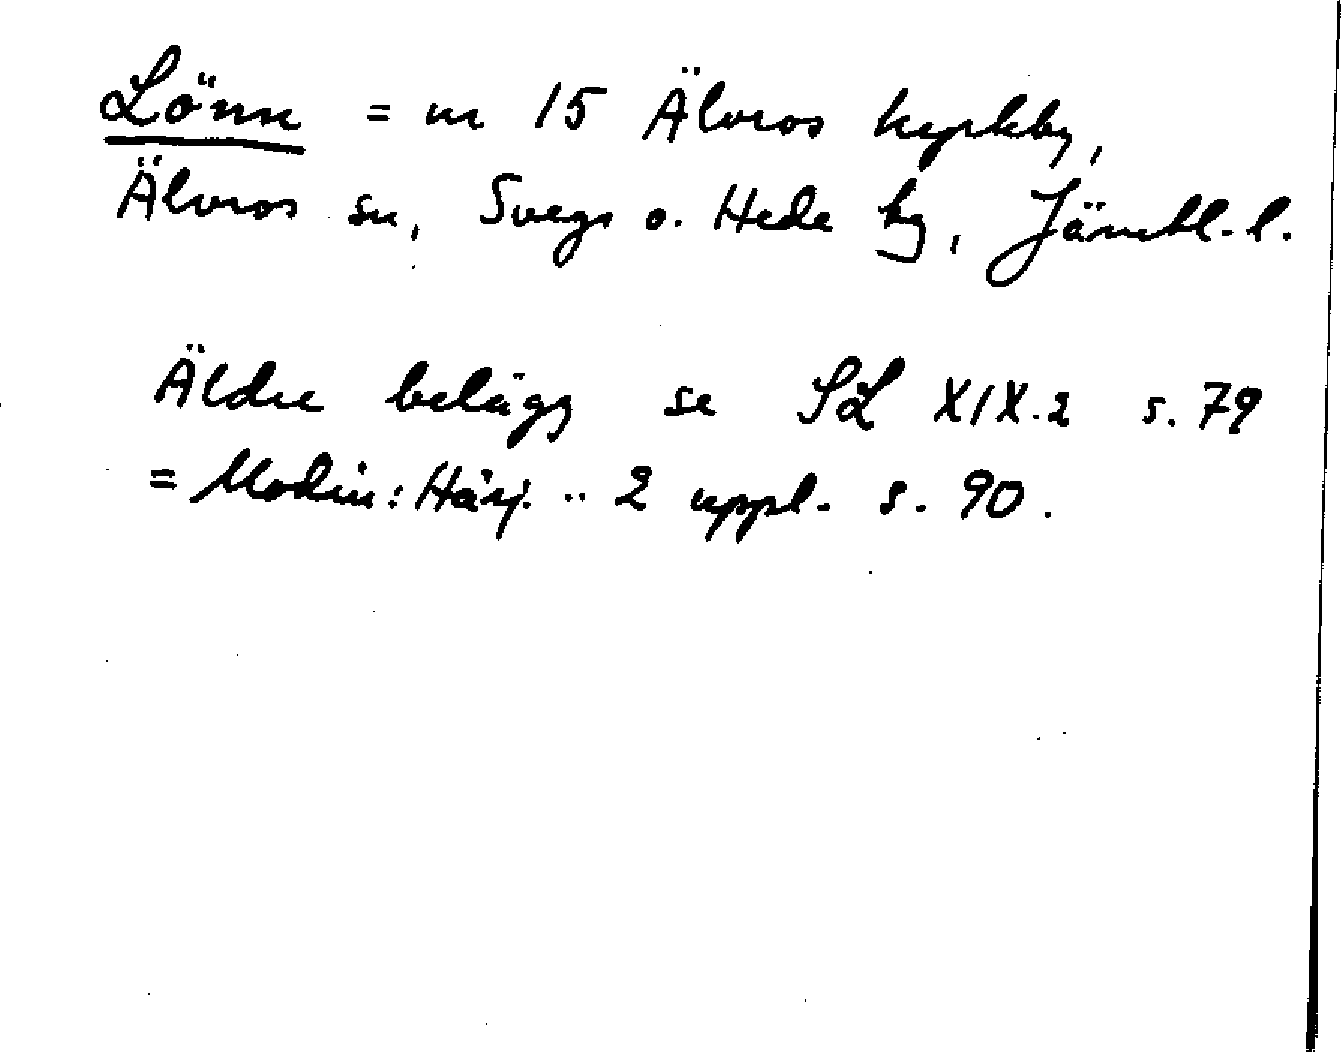 Lönn = nr 15 Älvros kyrkby,
Älvros sn, Svegs o. Hede tg, Jämtl. l.
Äldre belägg se SL XIX.2 s. 79
= Modin: Härj. .. 2 uppl. s. 90.